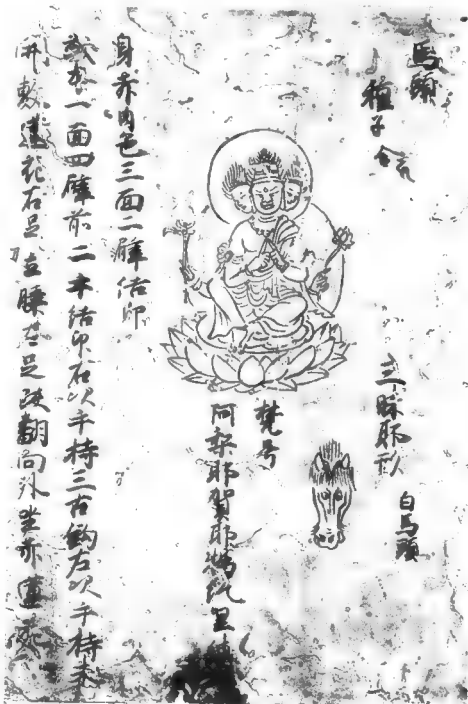 馬頭
種子
三昧耶形
白馬頭
梵号
阿梨耶賀耶
身赤肉色三面二臂結印
或本一面四臂前二手結印右次手持三古鉤左次手持未
開敷蓮花右足立膝左足趺翻向外坐赤蓮